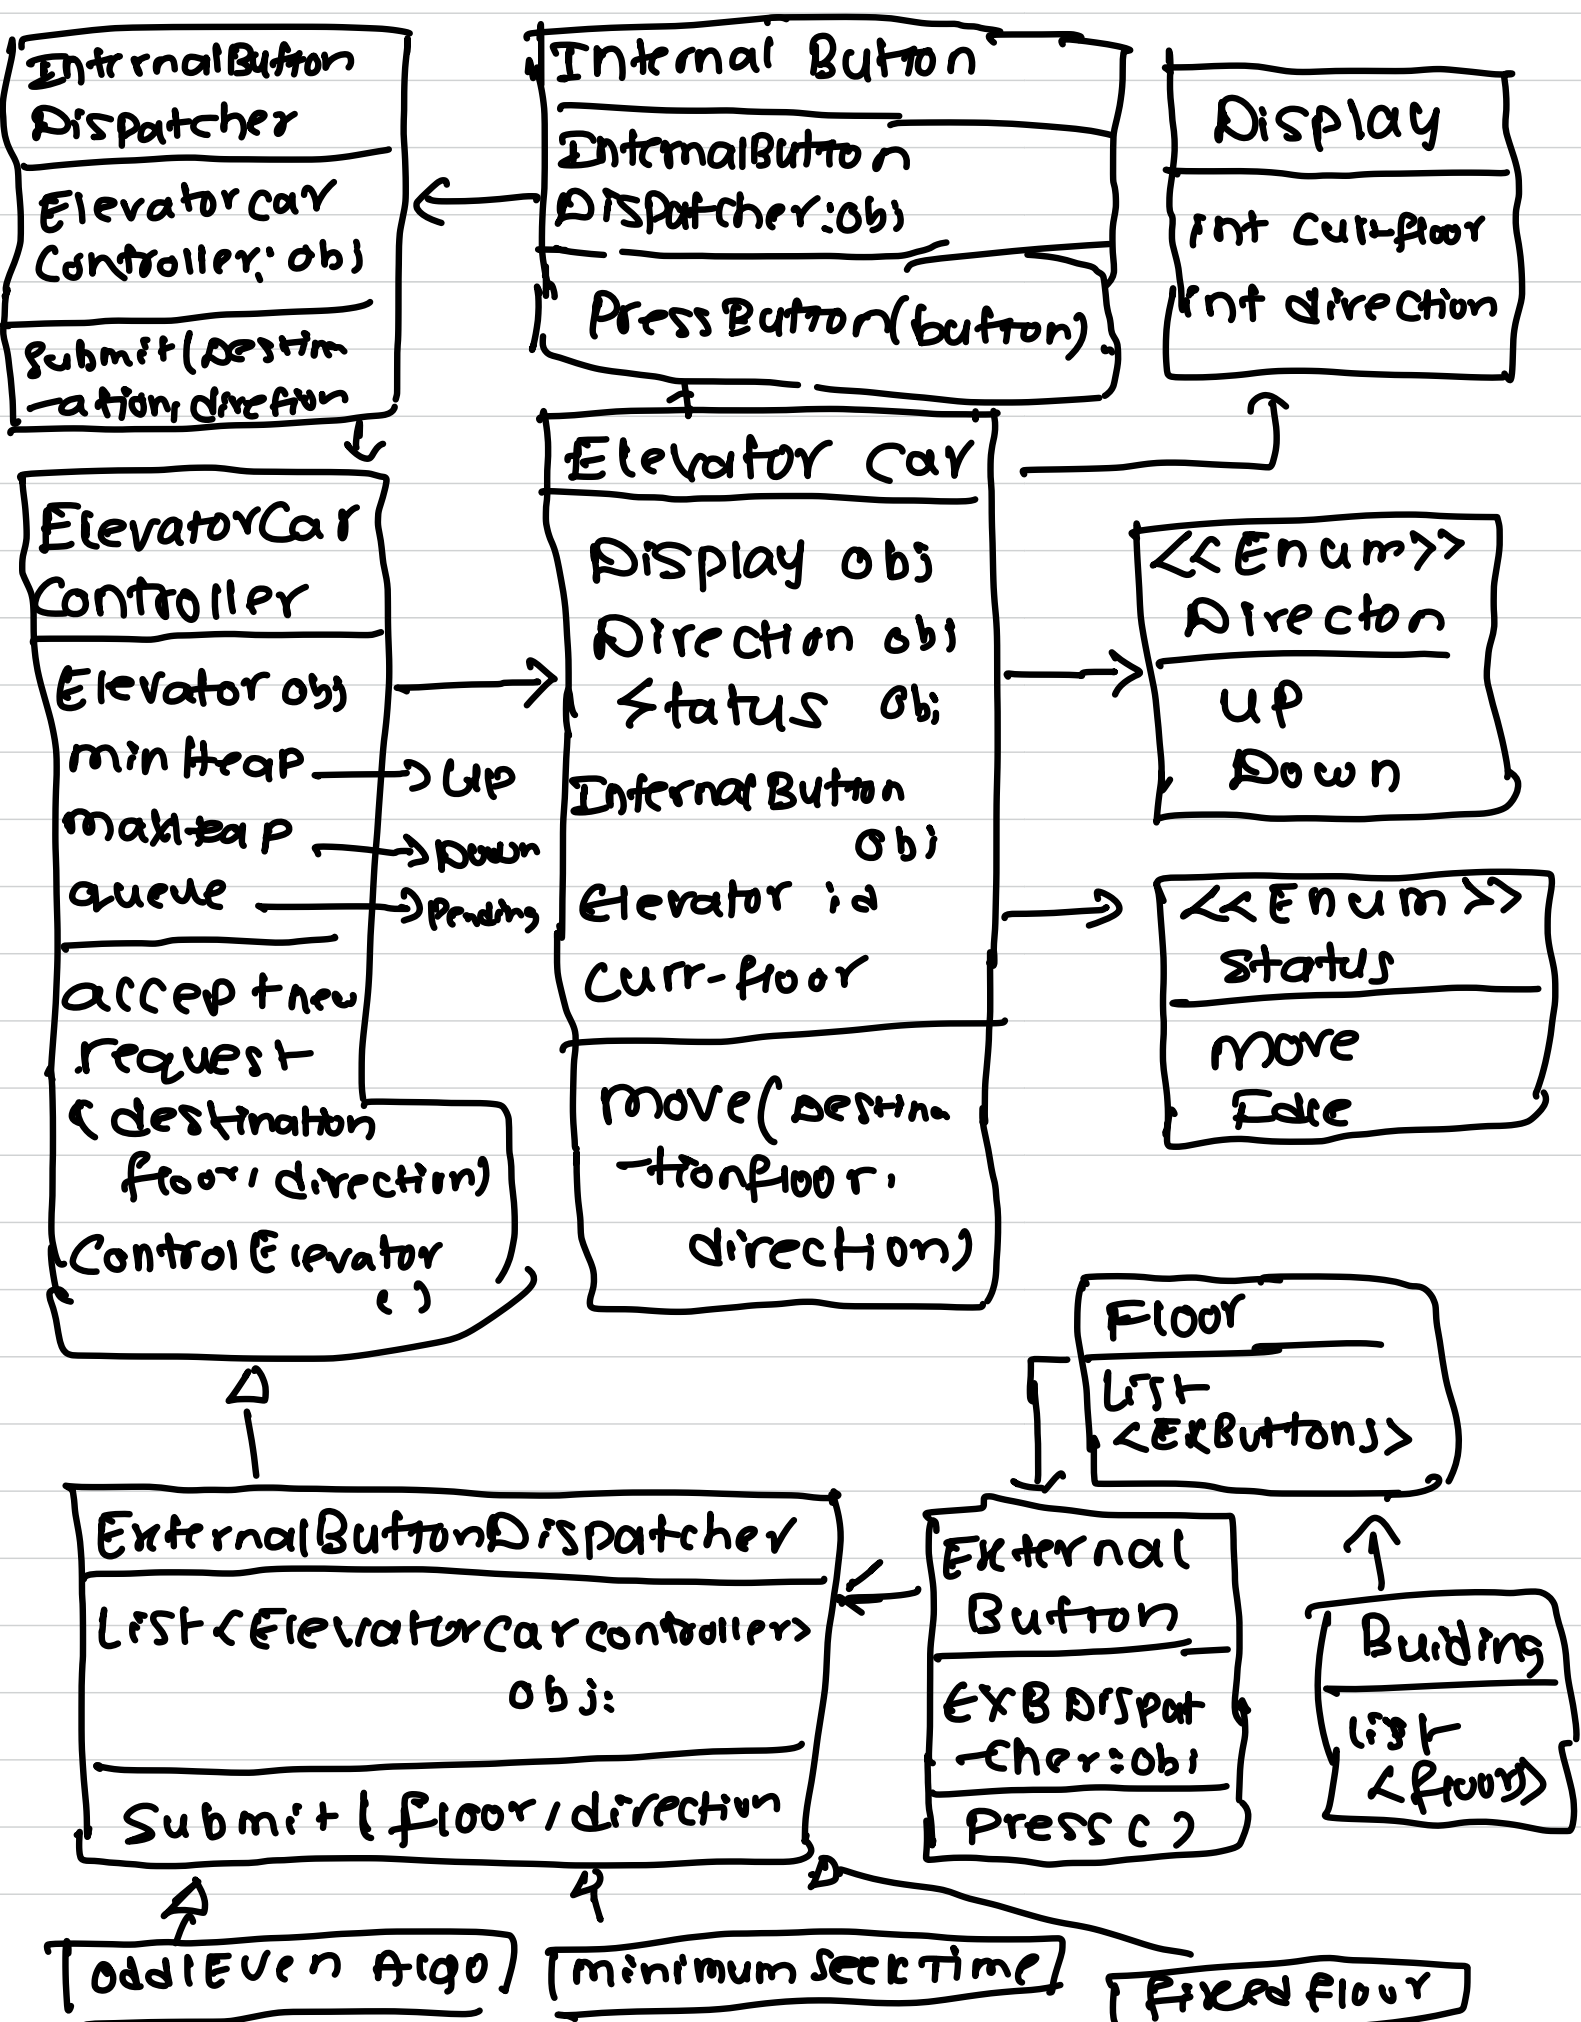 InternalButton
Dispatcher
Elevatorcar
Controller: obj
Submit(Destin
-ation, direction
Internal Button
InternalButton
Dispatcher:obj
PressButton(button)
Display
int curr-floor
int direction
ElevatorCar
Controller
Elevator obj
minHeap → UP
maxHeap → Down
queue → Pending
accept new
request
(destination
floor, direction)
ControlElevator
()
Elevator Car
Display obj
Direction obj
Status obj
InternalButton
obj
Elevator id
Curr-floor
move(Destina
-tionfloor,
direction)
<<Enum>>
Directon
UP
Down
<<Enum>>
Status
Move
Floor
List
<EXButtons>
ExternalButtonDispatcher
List<Elevatorcarcontroller>
obj:
Submit(floor, direction
External
Button
EXBDispat
-cher:obj
Press()
Buiding
List
<floor>>
Odd|Even Algo
minimum seek Time
fixed Flour